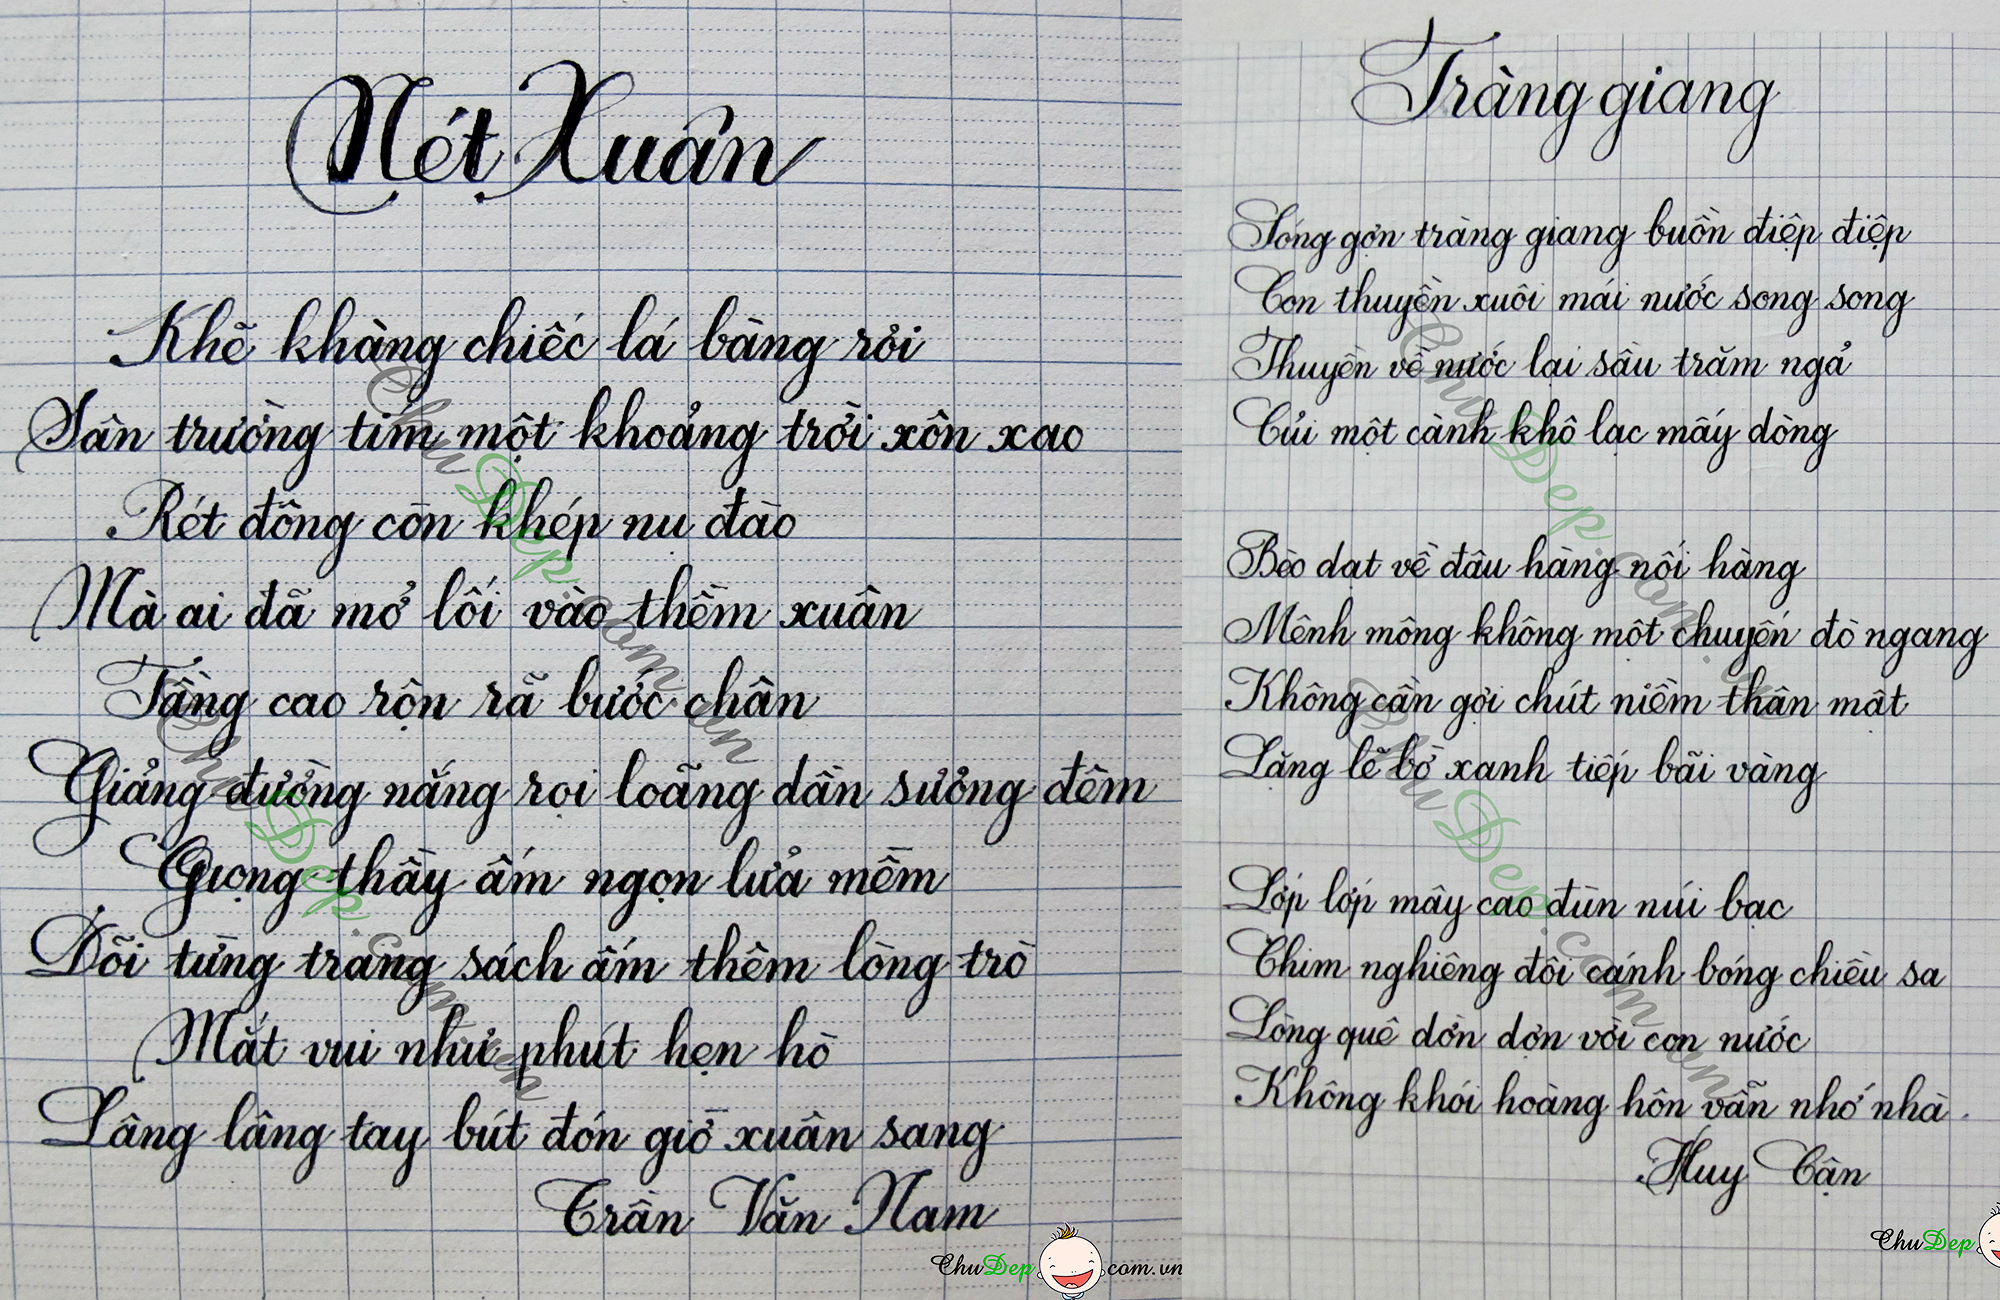 Nét Xuân
Khẽ khàng chiếc lá bàng rơi
Sân trường tím một khoảng trời xôn xao
Rét đông còn khép nụ đào
Mà ai đã mở lối vào thềm xuân
Tầng cao rộn rã bước chân
Giảng đường nắng rọi loãng dần sương đêm
Giọng thầy ấm ngọn lửa mềm
Dõi từng trang sách ấm thêm lòng trò
Mắt vui như phút hẹn hò
Lâng lâng tay bút đón giờ xuân sang
Trần Văn Nam
ChuDep.com.vn
Tràng giang
Sóng gợn tràng giang buồn điệp điệp
Con thuyền xuôi mái nước song song
Thuyền về nước lại sầu trăm ngả
Củi một cành khô lạc mấy dòng
Bèo dạt về đâu hàng nối hàng
Mênh mông không một chuyến đò ngang
Không cần gợi chút niềm thân mật
Lặng lẽ bờ xanh tiếp bãi vàng
Lớp lớp mây cao đùn núi bạc
Chim nghiêng đôi cánh bóng chiều sa
Lòng quê dờn dợn vời con nước
Không khói hoàng hôn vẫn nhớ nhà.
Huy Cận
ChuDep